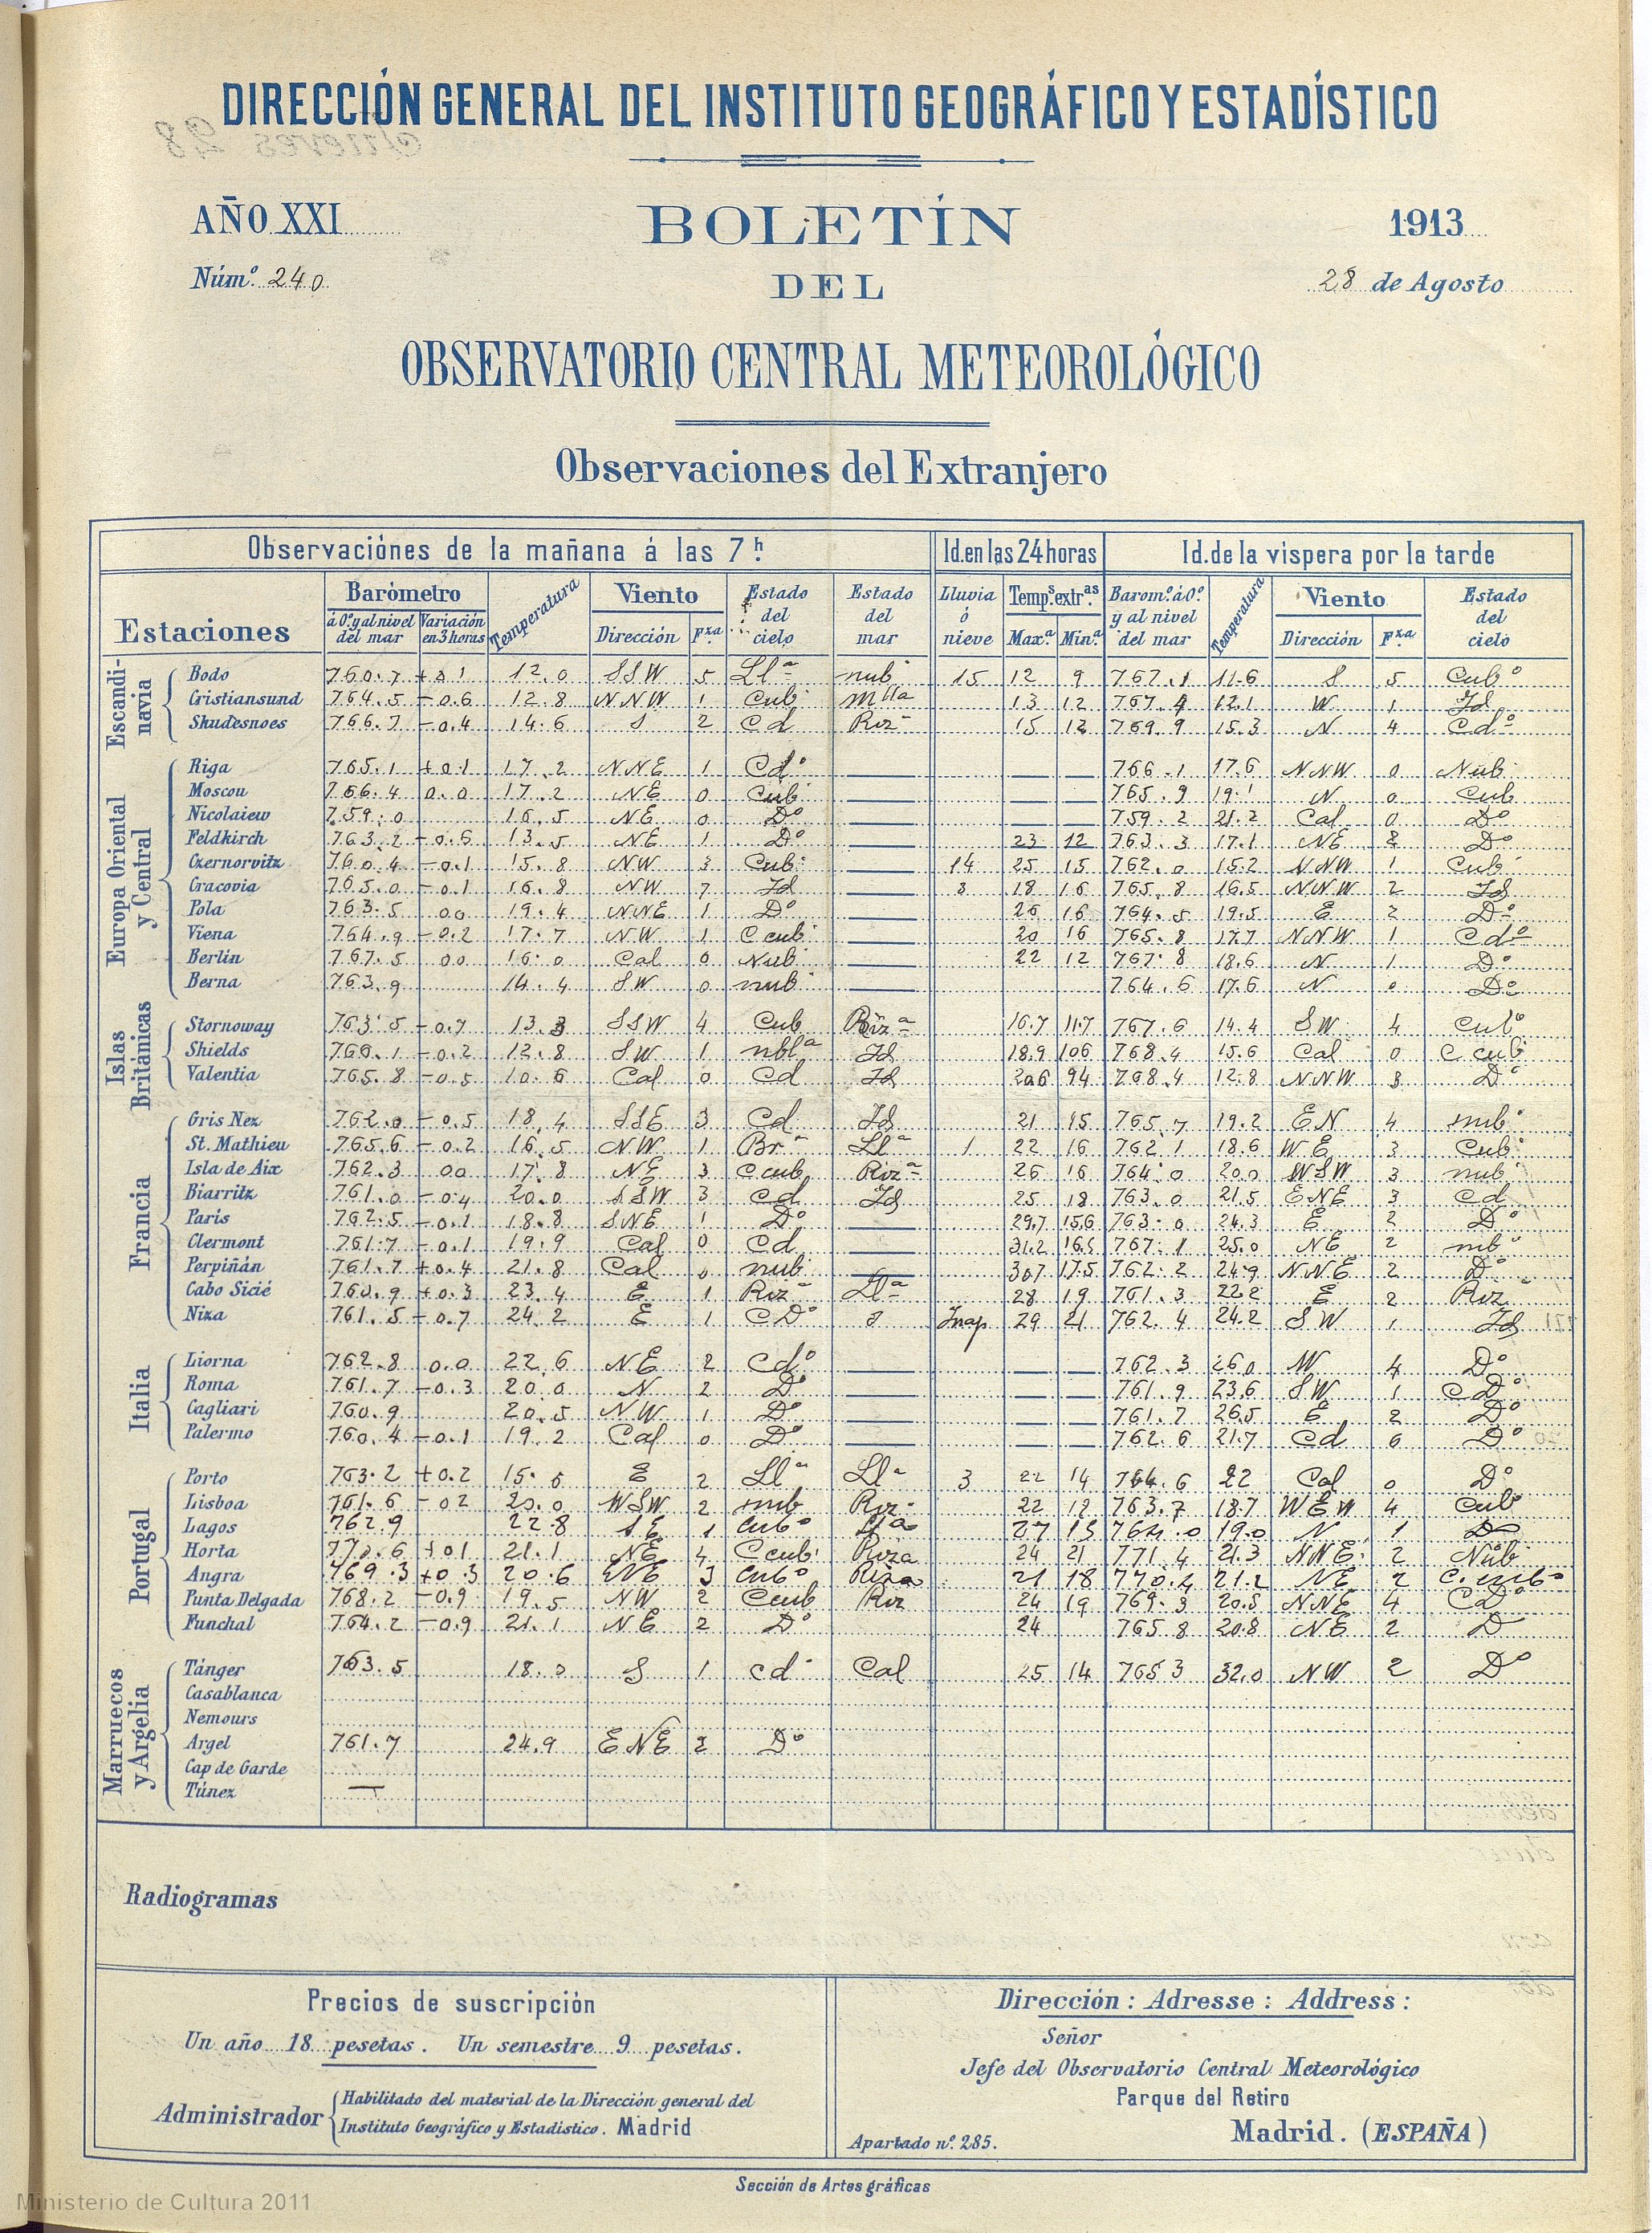 DIRECCIÓN GENERAL DEL INSTITUTO GEOGRÁFICO Y ESTADÍSTICO
AÑO XXI
BOLETÍN
1913
Núm.º 240
DEL
28 de Agosto
OBSERVATORIO CENTRAL METEOROLÓGICO
Observaciones del Extranjero
Observaciónes de la mañana á las 7 h.
Id. en las 24 horas
Id. de la vispera por la tarde
Estaciones
Baròmetro
á 0º y al nivel del mar
Variación en 3 horas
Temperatura
Viento
Dirección
Fxa.
Estado del cielo
Estado del mar
Lluvia ó nieve
Temps. extras.
Max.a
Min.a
Barom.º á 0º y al nivel del mar
Temperatura
Viento
Dirección
Fxa.
Estado del cielo
Escandinavia
Bodo 760.7 +0.1 12.0 SSW 5 Lla nub 15 12 9 767.1 11.6 S 5 Cubº
Cristiansund 764.5 -0.6 12.8 NNW 1 Cub mlla 13 12 767.9 12.1 W 1 Id
Shudesnoes 766.7 -0.4 14.6 S 2 Cd Riz 15 12 769.9 15.3 N 4 Cdº
Europa Oriental y Central
Riga 765.1 +0.1 17.2 NNE 1 Cdº — — — 766.1 17.6 NNW 0 Nub
Moscou 766.4 0.0 17.2 NE 0 Cub — — — 765.9 19.1 N 0 Cub
Nicolaiew 759.0 16.5 NE 0 Dº — — — 759.2 21.2 Cal 0 Dº
Feldkirch 763.2 -0.6 13.5 NE 1 Dº — 23 12 763.3 17.1 NE 2 Dº
Czernorvitz 760.4 -0.1 15.8 NW 3 Cub — 14 25 15 762.0 15.2 NNW 1 Cub
Cracovia 765.0 -0.1 16.8 NW 7 Id — 3 18 16 765.8 16.5 NNW 2 Id
Pola 763.5 00 19.4 NNE 1 Dº — 26 16 764.5 19.5 E 2 Dº
Viena 764.9 -0.2 17.7 NW 1 C cub — 20 16 765.8 17.7 NNW 1 Cdº
Berlin 767.5 00 16.0 Cal 0 Nub — 22 12 767.8 18.6 N 1 Dº
Berna 763.9 14.4 SW 0 nub — 764.6 17.6 N 0 Dº
Islas Británicas
Stornoway 763.5 -0.7 13.3 SSW 4 Cub Riza 16.7 11.7 767.6 14.4 SW 4 Cubº
Shields 766.1 -0.2 12.8 SW 1 nbla Id 18.9 106 768.4 15.6 Cal 0 C cub
Valentia 765.8 -0.5 10.6 Cal 0 Cd Id 206 94 768.4 12.8 NNW 3 Dº
Francia
Gris Nez 762.0 -0.5 18.4 SSE 3 Cd Id 21 15 765.7 19.2 EN 4 nub
St. Mathieu 765.6 -0.2 16.5 NW 1 Bra Lla 1 22 16 762.1 18.6 WE 3 Cub
Isla de Aix 762.3 00 17.8 NE 3 C cub Riza 26 16 764.0 20.0 WSW 3 nub
Biarritz 761.0 -0.4 20.0 SSW 3 Cd Id 25 18 763.0 21.5 ENE 3 Cd
Paris 762.5 -0.1 18.8 SNE 1 Dº — 29.7 15.6 763.0 24.3 E 2 Dº
Clermont 761.7 -0.1 19.9 Cal 0 Cd — 31.2 16.5 767.1 25.0 NE 2 nb
Perpiñán 761.7 +0.4 21.8 Cal 0 nub — 307 17.5 762.2 24.9 NNE 2 Dº
Cabo Sicié 760.9 +0.3 23.4 E 1 Riz Lla 28 19 761.3 222 E 2 Riz
Niza 761.5 -0.7 24.2 E 1 CDº Inap 29 21 762.4 24.2 SW 1 Id
Italia
Liorna 762.8 0.0 22.6 NE 2 Cdº — — — 762.3 26.0 W 4 Dº
Roma 761.7 -0.3 20.0 N 2 Dº — — — 761.9 23.6 SW 1 CDº
Cagliari 760.9 20.5 NW 1 Dº — — — 761.7 26.5 E 2 Dº
Palermo 760.4 -0.1 19.2 Cal 0 Dº — — — 762.6 21.7 Cd 6 Dº
Portugal
Porto 763.2 +0.2 15.6 E 2 Lla Lla 3 22 14 764.6 22 Cal 0 Dº
Lisboa 761.6 -02 20.0 WSW 2 nub Riz 22 18 763.7 18.7 4 Cub
Lagos 762.9 22.8 SE 1 Cubº Lla 27 15 764.0 19.0 N 1 Dº
Horta 770.6 +01 21.1 NE 4 C cub Riza 24 21 771.4 21.3 NNE 2 Nub
Angra 769.3 +0.3 20.6 ENE 3 Cubº Riza 21 18 770.4 21.2 NE 2
Punta Delgada 768.2 -0.9 19.5 NW 2 Ccub Riz 24 19 769.3 20.5 NNE 4 CDº
Funchal 764.2 -0.9 21.1 NE 2 Dº 24 765.8 20.8 NE 2 D
Marruecos y Argelia
Tánger 763.5 18.0 S 1 cd Cal 25 14 765.3 32.0 NW 2 Dº
Casablanca
Nemours
Argel 761.7 24.9 ENE 2 Dº
Cap de Garde
Túnez —
Radiogramas
Precios de suscripción
Un año 18 pesetas. Un semestre 9 pesetas.
Administrador { Habilitado del material de la Dirección general del
Instituto Geográfico y Estadistico. Madrid
Dirección : Adresse : Address :
Señor
Jefe del Observatorio Central Meteorológico
Parque del Retiro
Madrid. (ESPAÑA)
Apartado nº. 285.
Sección de Artes gráficas
Ministerio de Cultura 2011